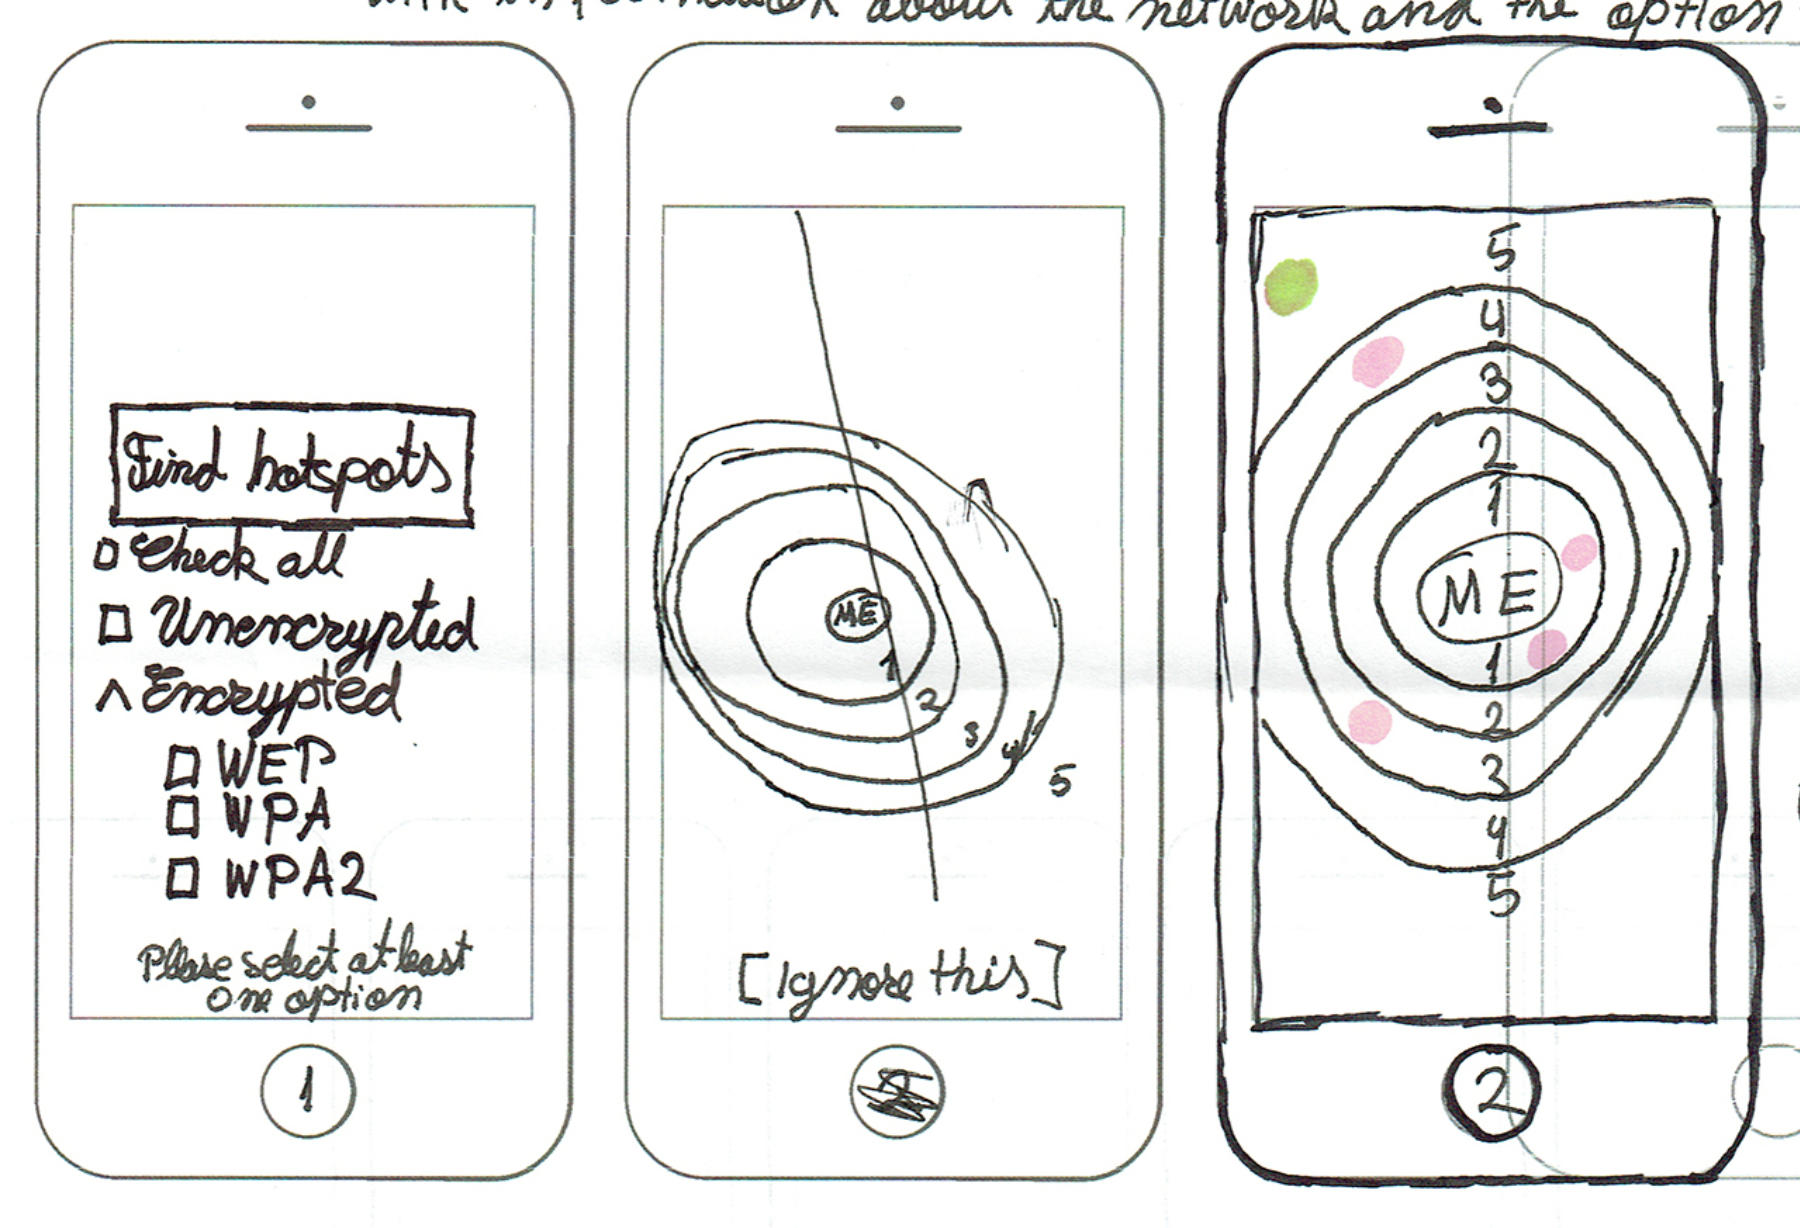 about the network and the option
Find hotspots
Check all
Unencrypted
^ Encrypted
WEP
WPA
WPA2
Please select at least
one option
1
ME
1
2
3
4
5
[Ignore this]
5
4
3
2
1
ME
1
2
3
4
5
2